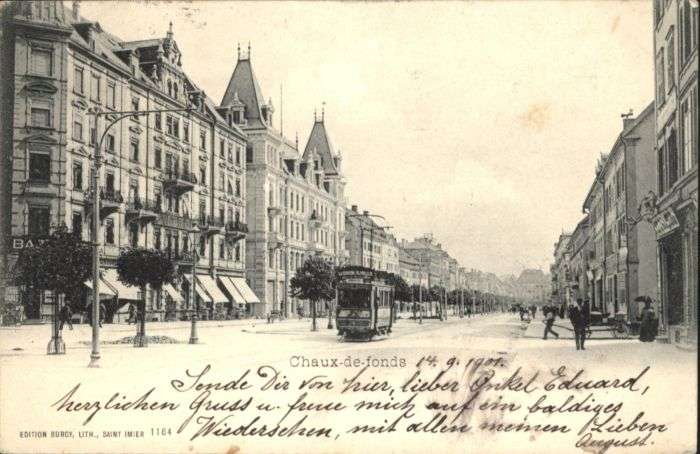 BAZ
Chaux-de-fonds 14. 9. 1901.
Sende Dir von hier, lieber Onkel Eduard,
herzlichen Gruss u. freue mich auf ein baldiges
Wiedersehen, mit allen meinen Lieben
August.
EDITION BURGY, LITH., SAINT IMIER 1164